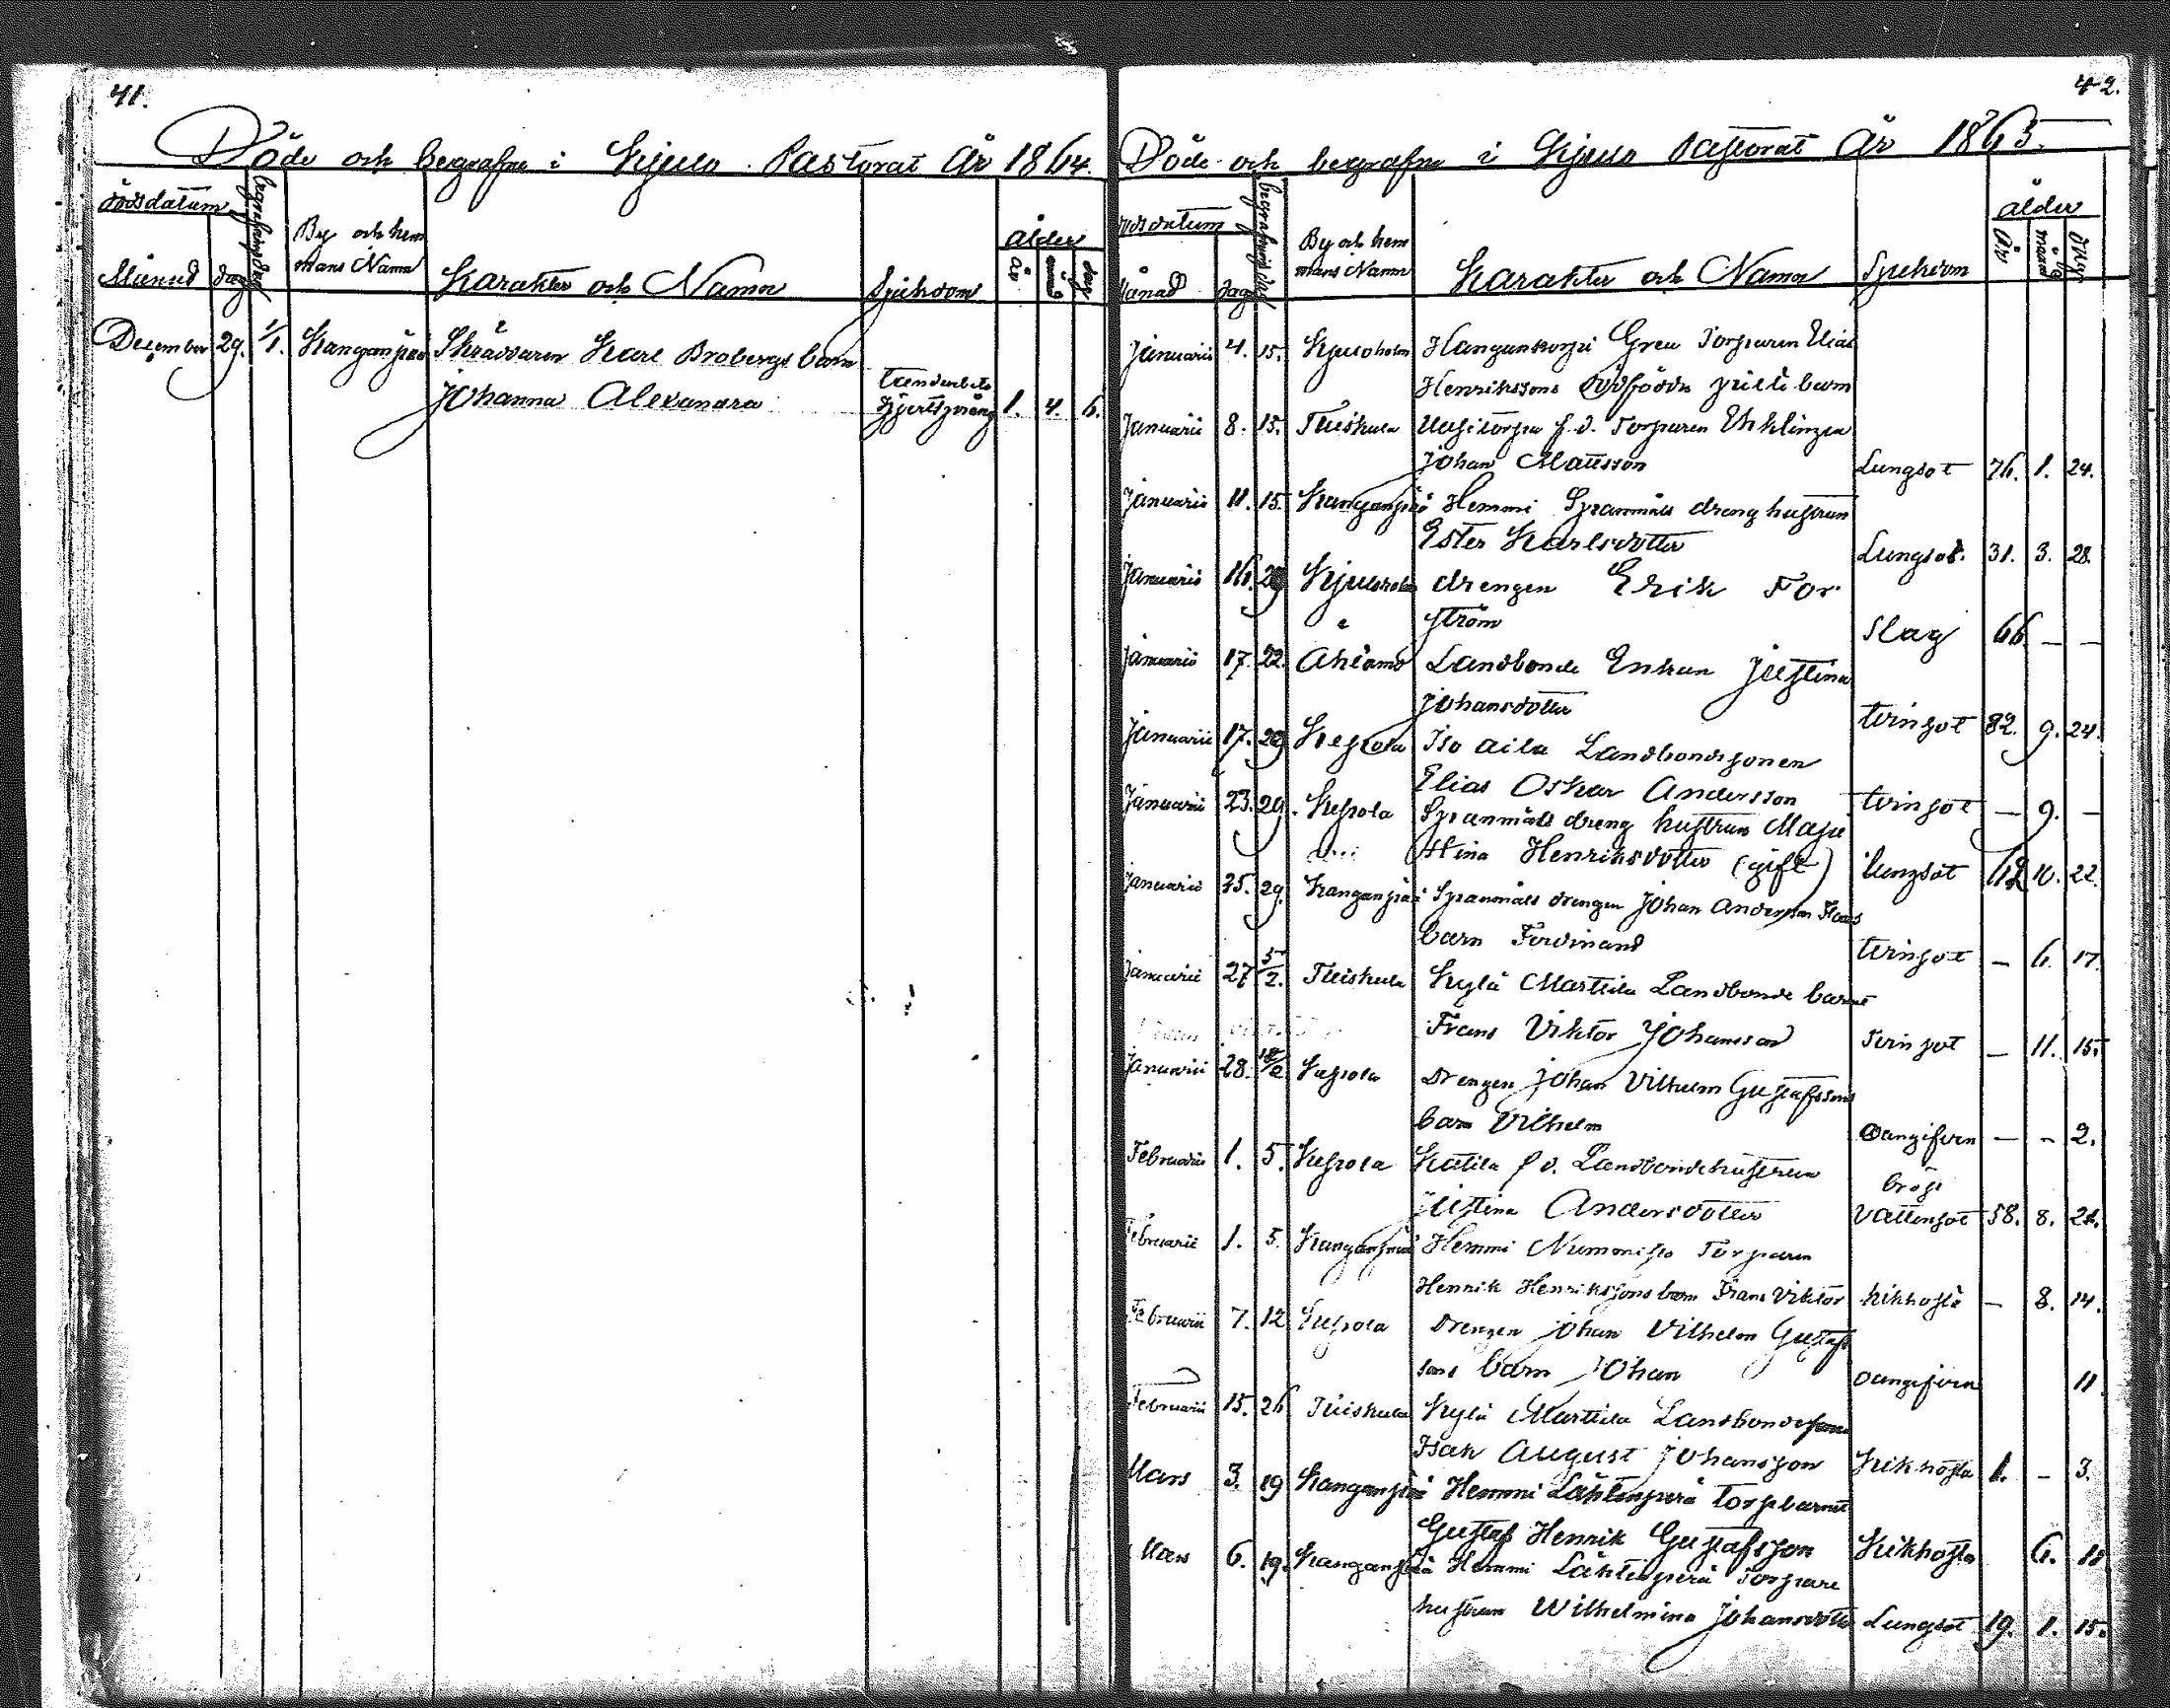 41.
Döde och begrafne i Kjulo Pastorat År 1864.
dödsdatum
begrafningsdag
By och hem
mans Namn
ålder
Månad dag
Karakter och Namn
Sjukdom
år
månad
dag
December 29. 1/1. Kanganpää Skräddaren Karl Brobergs barn
Johanna Alexandra
hjertsprång 1. 4. 6.
42.
Döde och begrafne i Kjulo Pastorat År 1865.
dödsdatum
begrafningsdag
By och hem
mans Namn
ålder
Månad dag
Karakter och Namn
Sjukdom
år
månad
dag
Januarii 4. 15. Kjuloholm Hangunkorpi Torparen Elias
Henrikssons dödfödda barn
Januarii 8. 15. Tuiskula f.d. Torparen
Johan Mattsson Lungsot 76. 1. 24.
Januarii 11. 15. Kanganpää Hemmi Spanmåls dreng hustrun
Ester Karlsdotter Lungsot. 31. 3. 28.
Januarii 16. 29 Kjuloholm drengen Erik For
ström Slag 66 — —
Januarii 17. 22. Ahlamo Landbonde Enkan Justina
Johansdotter tvinsot 82. 9. 24.
Januarii 17. 29 Kepola Iso aila Landbondesonen
Elias Oskar Andersson tvinsot — 9. —
Januarii 23. 29. Kepola Spanmåls dreng hustrun Maja
Stina Henriksdotter (gift) Lungsot 10. 22.
Januarii 25. 29. Kanganpää Spanmåls drengen Johan Andersson
barn Ferdinand tvinsot — 6. 17.
Januarii 27 5/2. Tuiskula Kylä Marttila Landbonde barnet
Frans Viktor Johansson Tvinsot — 11. 15.
Januarii 28. Kepola Drengen Johan Vilhelm Gustafssons
barn Vilhelm Oangifven — – 2.
Februarii 1. 5. Kepola Kutila f d. Landbondehustrun
Justina Andersdotter bröst
Vattensot 58. 8.
Februarii 1. 5. Kanganpää Hemmi Torparen
Henrik Henrikssons barn Frans Viktor kikhosta — 8. 14.
Februarii 7. 12 Kepola Drengen Johan Vilhelm Gustafs
sons barn Johan Oangifven 11
Februarii 15. 26 Tuiskula Kylä Marttila Landbondeson
Isak August Johansson Kikhosta 1. – 3.
Mars 3. 19 Kanganpää Hemmi Lähtenperä torpbarnet
Gustaf Henrik Gustafsson Kikhosta 6. 11
Mars 6. 19. Kanganpää Hemmi Lähtenperä Torpare
hustrun Wilhelmina Johansdotter Lungsot 19. 1. 15.